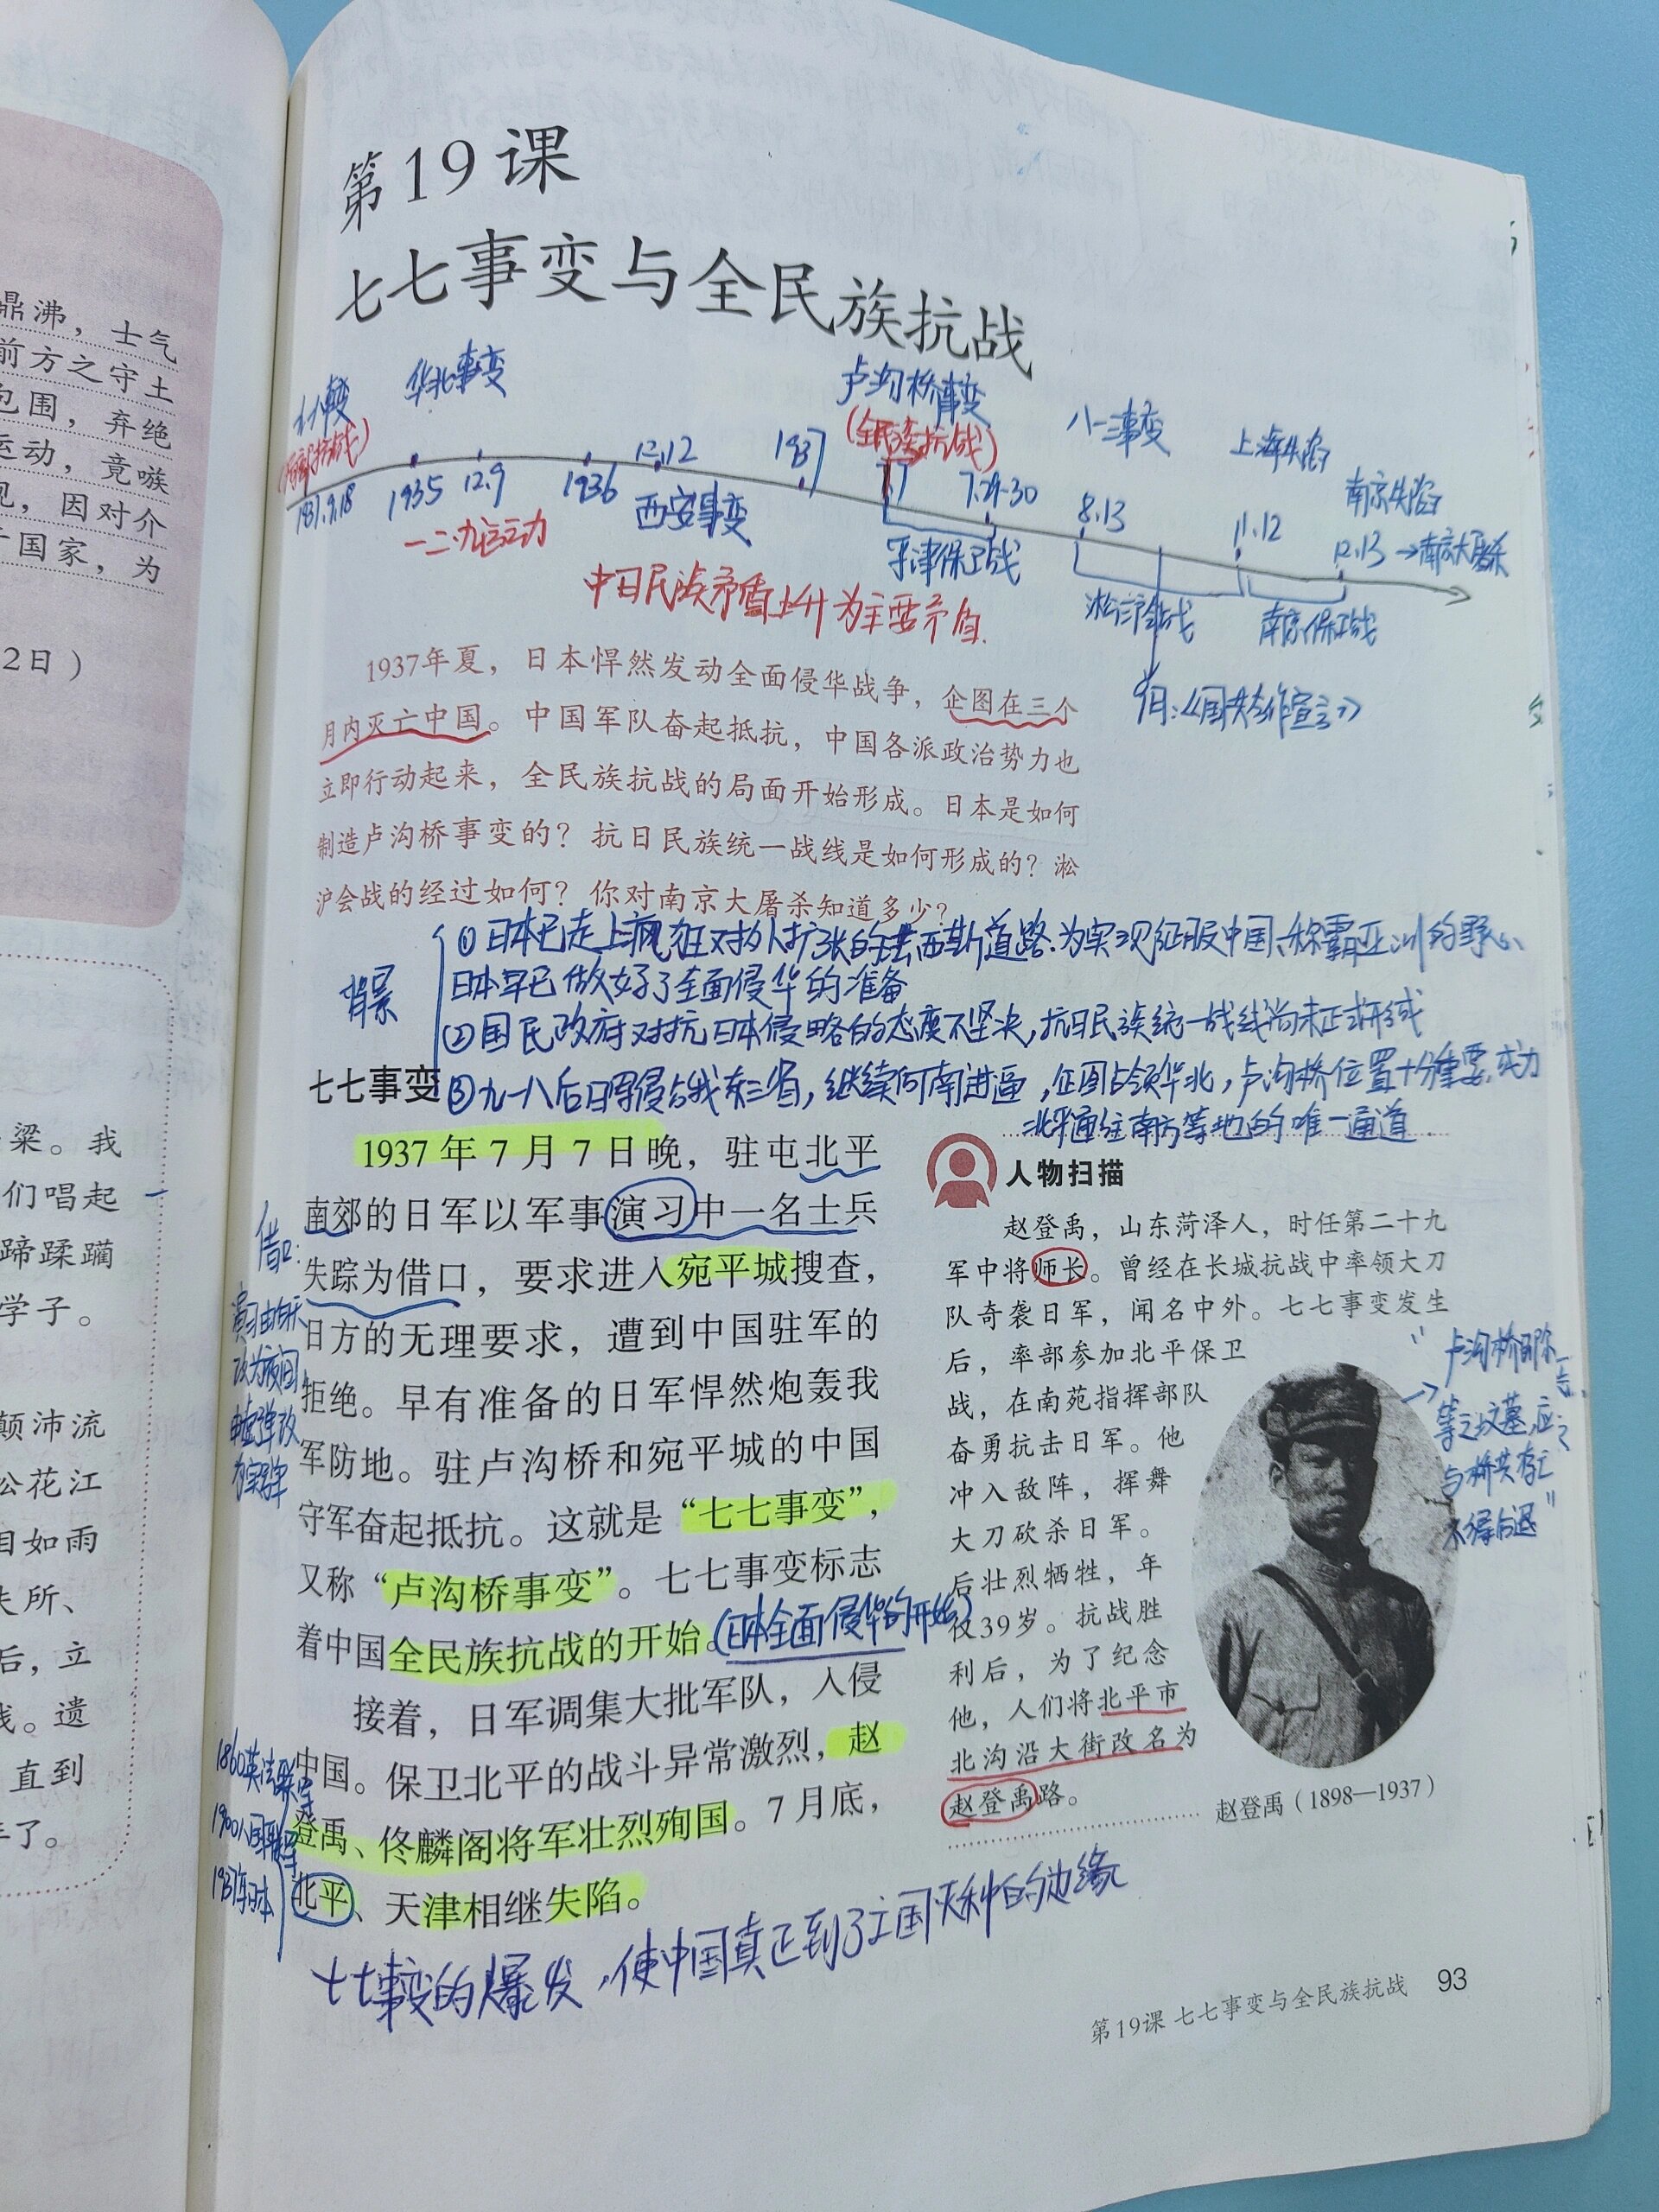 鼎沸，士气
前方之守土
包围，弃绝
运动，竟嗾
况，因对介
国家，为
2日）
梁。我
们唱起
蹄蹂躏
学子。
颠沛流
公花江
目如雨
失所、
后，立
线。遗
直到
年了。
第19课
七七事变与全民族抗战
华北事变
卢沟桥事变
(全民族抗战)
八一三事变
上海失陷
南京失陷
1931.9.18
1935
12.9
1936
12.12
1937
7.7
7.29-30
8.13
11.12
12.13→南京大屠杀
一二·九运动
西安事变
平津保卫战
淞沪会战
南京保卫战
中日民族矛盾上升为主要矛盾.
9月:《国共合作宣言》
1937年夏，日本悍然发动全面侵华战争，企图在三个
月内灭亡中国。中国军队奋起抵抗，中国各派政治势力也
立即行动起来，全民族抗战的局面开始形成。日本是如何
制造卢沟桥事变的？抗日民族统一战线是如何形成的？淞
沪会战的经过如何？你对南京大屠杀知道多少？
背景
①日本已走上疯狂对外扩张的法西斯道路.为实现征服中国、称霸亚洲的野心、
日本早已做好了全面侵华的准备
②国民政府对抗日本侵略的态度不坚决,抗日民族统一战线尚未正式形成
③九一八后日军侵占我东三省，继续向南进逼，企图占领华北，卢沟桥位置十分重要.成为
北平通往南方等地的唯一通道.
七七事变
1937年7月7日晚，驻屯北平
南郊的日军以军事演习中一名士兵
失踪为借口，要求进入宛平城搜查，
日方的无理要求，遭到中国驻军的
拒绝。早有准备的日军悍然炮轰我
军防地。驻卢沟桥和宛平城的中国
守军奋起抵抗。这就是“七七事变”，
又称“卢沟桥事变”。七七事变标志
着中国全民族抗战的开始。
(日本全面侵华的开始)
接着，日军调集大批军队，入侵
中国。保卫北平的战斗异常激烈，赵
登禹、佟麟阁将军壮烈殉国。7月底，
北平、天津相继失陷。
借口:
演习由白天
改为夜间
由空弹改
为实弹
1860英法联军
1900八国联军
1937年日本
七七事变的爆发，使中国真正到了亡国灭种的边缘
人物扫描
赵登禹，山东菏泽人，时任第二十九
军中将师长。曾经在长城抗战中率领大刀
队奇袭日军，闻名中外。七七事变发生
后，率部参加北平保卫
战，在南苑指挥部队
奋勇抗击日军。他
冲入敌阵，挥舞
大刀砍杀日军。
后壮烈牺牲，年
仅39岁。抗战胜
利后，为了纪念
他，人们将北平市
北沟沿大街改名为
赵登禹路。
“卢沟桥即尔
等之坟墓,应
与桥共存亡
不得后退”
赵登禹（1898—1937）
第19课 七七事变与全民族抗战 93